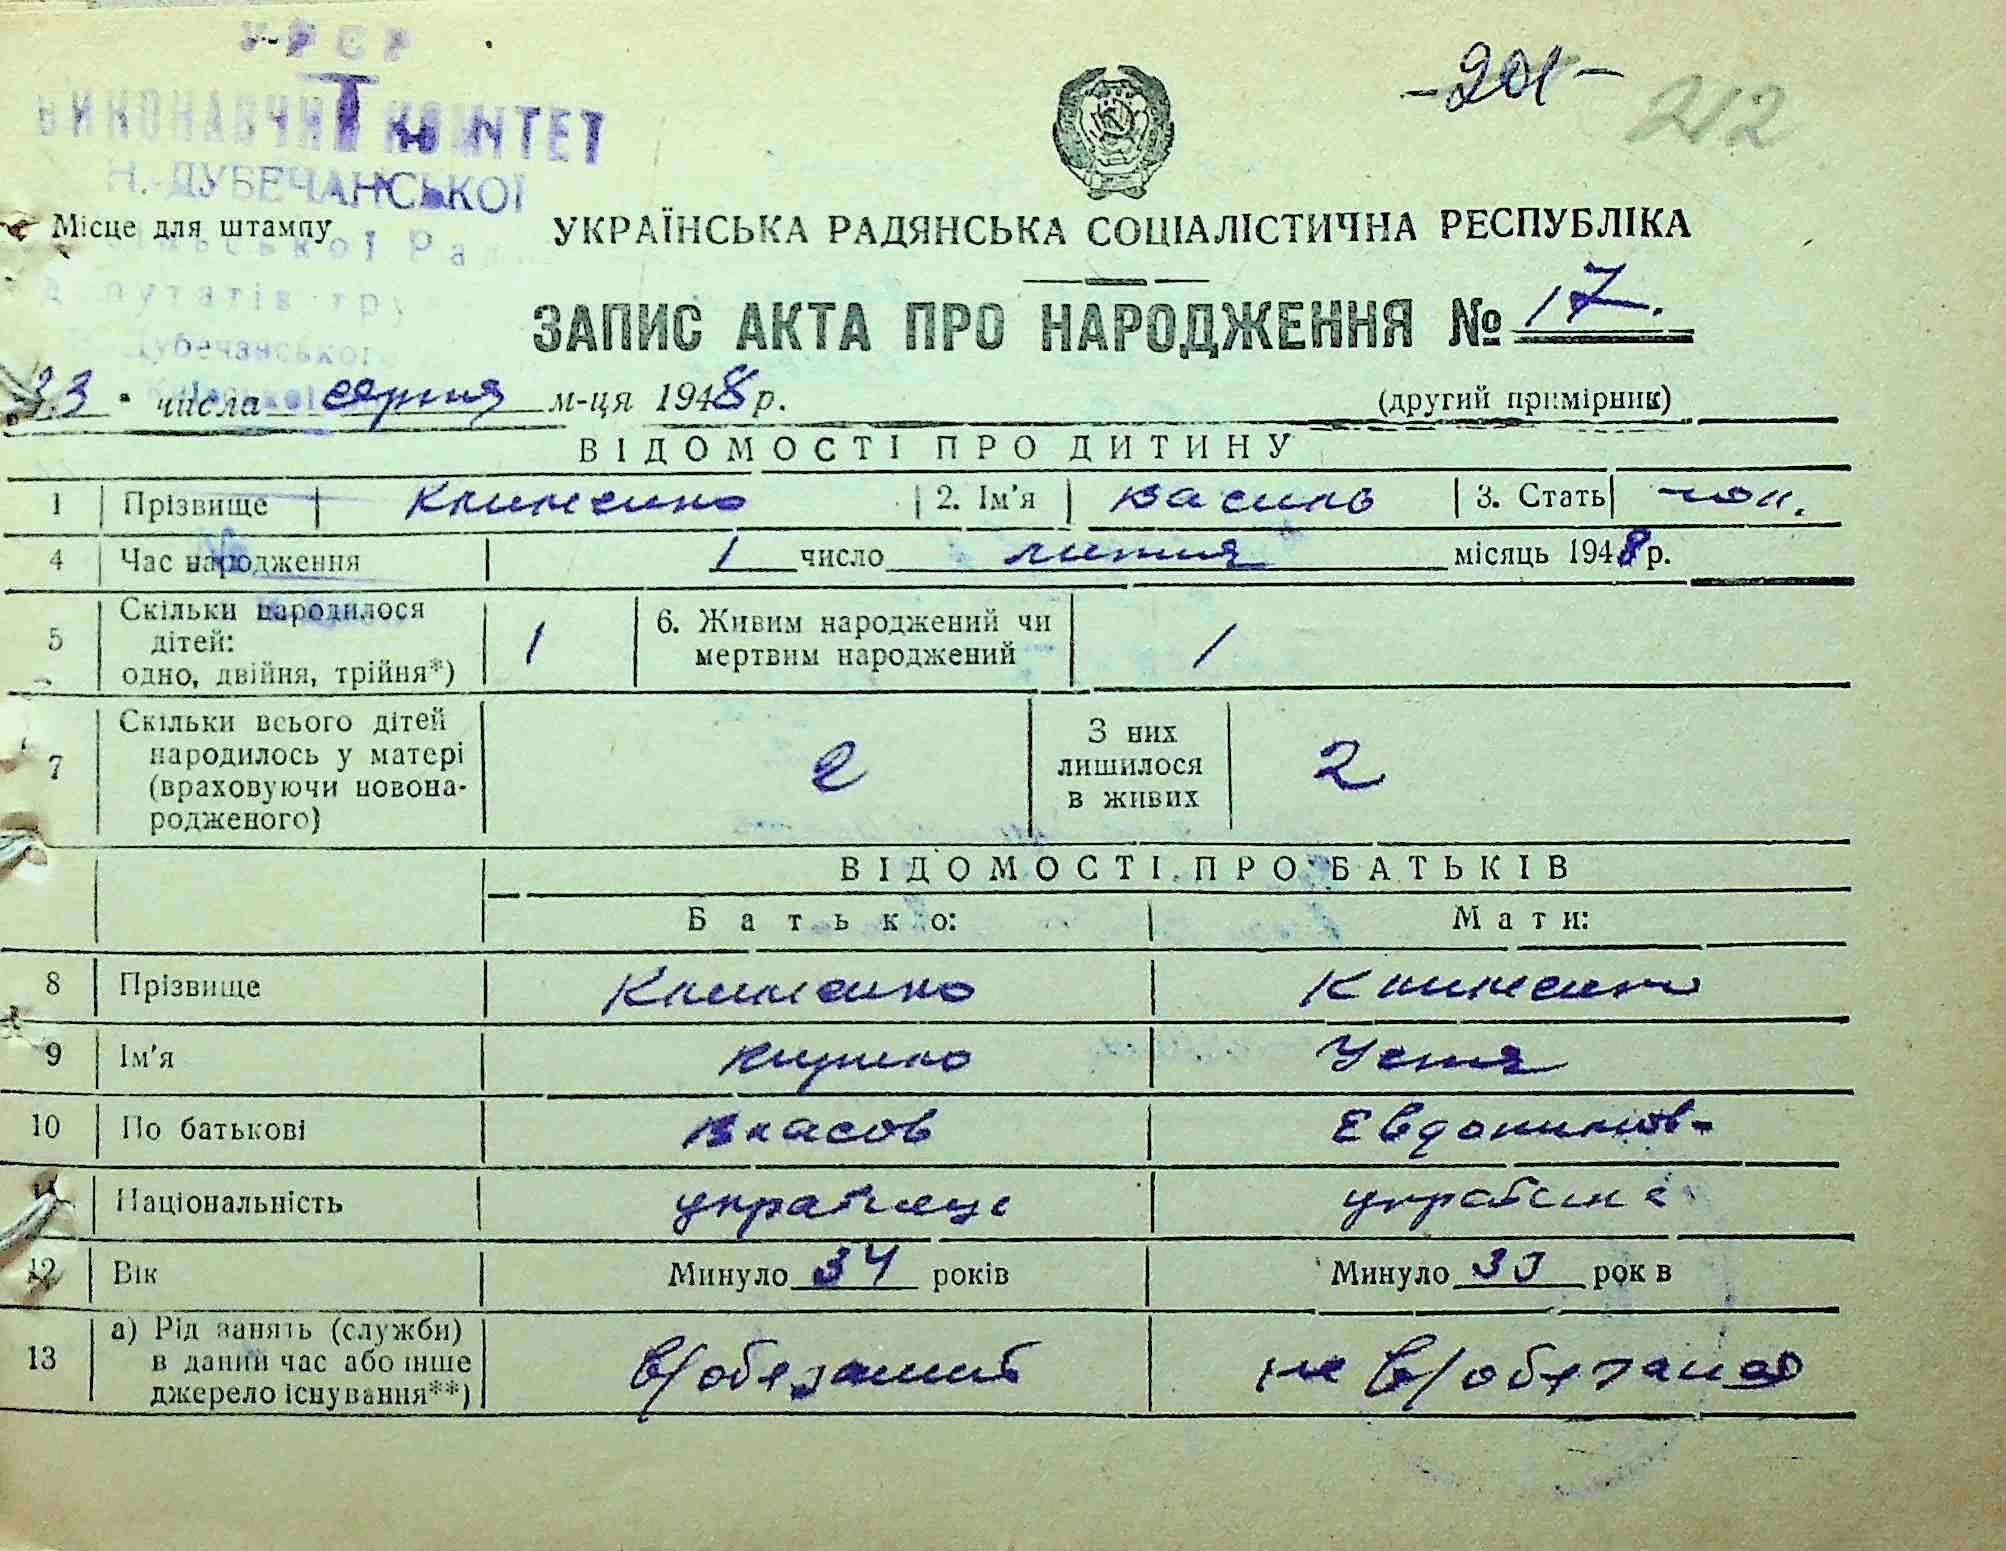 УРСР
ВИКОНАВЧИЙ КОМІТЕТ
Н.-ДУБЕЧАНСЬКОЇ
-201-
212
Місце для штампу
УКРАЇНСЬКА РАДЯНСЬКА СОЦІАЛІСТИЧНА РЕСПУБЛІКА
ЗАПИС АКТА ПРО НАРОДЖЕННЯ № 17.
23 числа серпня м-ця 1948 р.
(другий примірник)
ВІДОМОСТІ ПРО ДИТИНУ
1 Прізвище Клименко 2. Ім'я Василь 3. Стать чол.
4 Час народження 1 число липня місяць 1948 р.
5 Скільки народилося дітей: одно, двійня, трійня*) 1 6. Живим народжений чи мертвим народжений 1
7 Скільки всього дітей народилось у матері (враховуючи новонародженого) 2 З них лишилося в живих 2
ВІДОМОСТІ ПРО БАТЬКІВ
Батько: Мати:
8 Прізвище Клименко Клименко
9 Ім'я Кирило Устя
10 По батькові Власов Евдокимов-
11 Національність українець українка
12 Вік Минуло 34 років Минуло 33 рок в
13 а) Рід занять (служби) в даний час або інше джерело існування**) в/обязаний не в/обязаная